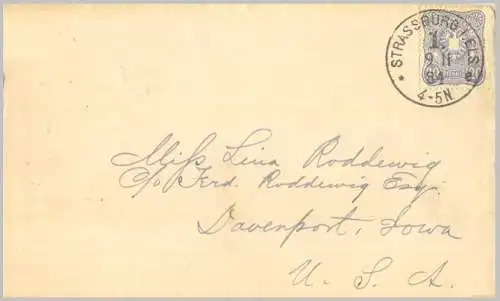 STRASSBURG I. ELS
1.
9 11
84
4-5N
Miſs Lina Roddewig
c/o Ferd. Roddewig Esq.
Davenport, Iowa
U. S. A.